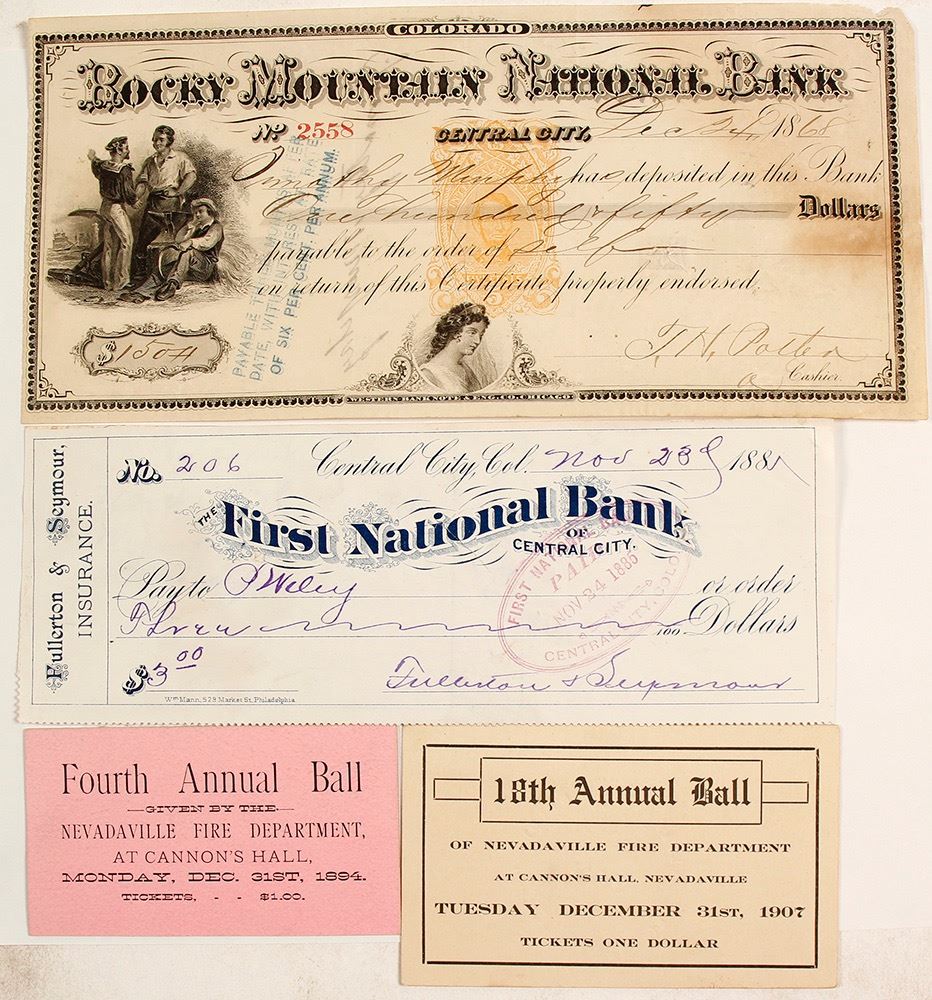 COLORADO
ROCKY MOUNTAIN NATIONAL BANK
No 2558 CENTRAL CITY, Dec 1868
Timothy Murphy has deposited in this Bank
One hundred & fifty Dollars
payable to the order of self
on return of this Certificate properly endorsed.
$150
Cashier.
WESTERN BANK NOTE & ENG. CO. CHICAGO
DATE, WITH INTEREST
OF SIX PER CENT. PER ANNUM.
Fullerton & Seymour,
INSURANCE.
No. 206 Central City, Col. Nov 23d 188
THE First National Bank
OF
CENTRAL CITY.
Pay to or order
Three 100 Dollars
$3.00
Fullerton & Seymour
Wm Mann, 529 Market St. Philadelphia
FIRST NATIONAL BANK
PAID
NOV 24 1885
CENTRAL CITY, COLO
Fourth Annual Ball
—GIVEN BY THE—
NEVADAVILLE FIRE DEPARTMENT,
AT CANNON'S HALL,
MONDAY, DEC. 31ST, 1894.
TICKETS, - - $1.00.
18th Annual Ball
OF NEVADAVILLE FIRE DEPARTMENT
AT CANNON'S HALL, NEVADAVILLE
TUESDAY DECEMBER 31ST, 1907
TICKETS ONE DOLLAR